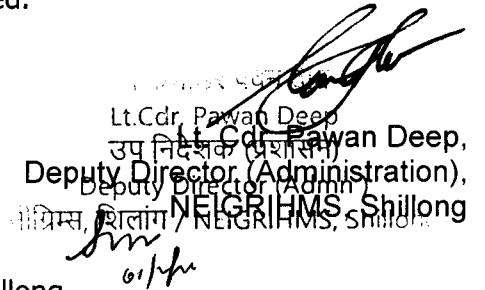 ed.
Lt.Cdr, Pawan Deep
Lt. Cdr. Pawan Deep,
उप निदेशक (प्रशासन)
Deputy Director (Administration),
Deputy Director (Admn)
NEIGRIHMS, Shillong
शिलांग / NEIGRIHMS, Shillong
llong